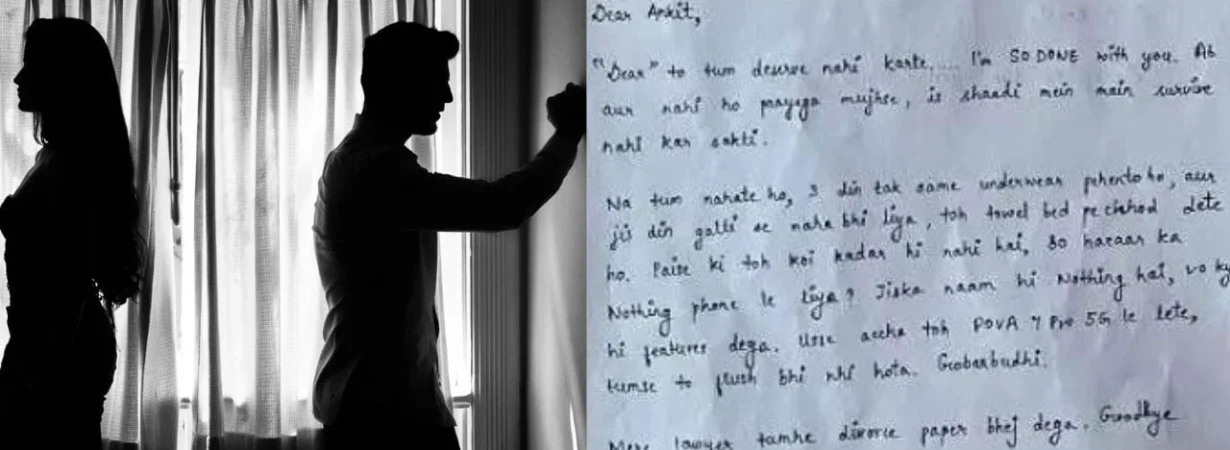 Dear Ankit,
"Dear" to tum deserve nahi karte.... I'm SO DONE with you. Ab
aur nahi ho payega mujhse, is shaadi mein main survive
nahi kar sakti.
Na tum nahate ho, 3 din tak same underwear pehente ho, aur
jis din galti se naha bhi liya, toh towel bed pe chhod dete
ho. Paise ki toh koi kadar hi nahi hai, 80 hazaar ka
Nothing phone le liya? Jiska naam hi Nothing hai, vo ky
hi features dega. Usse accha toh POVA 7 Pro 5G le lete,
tumse to flush bhi nhi hota. Goobarbudhi.
Mere lawyer tumhe divorce paper bhej dega. Goodbye